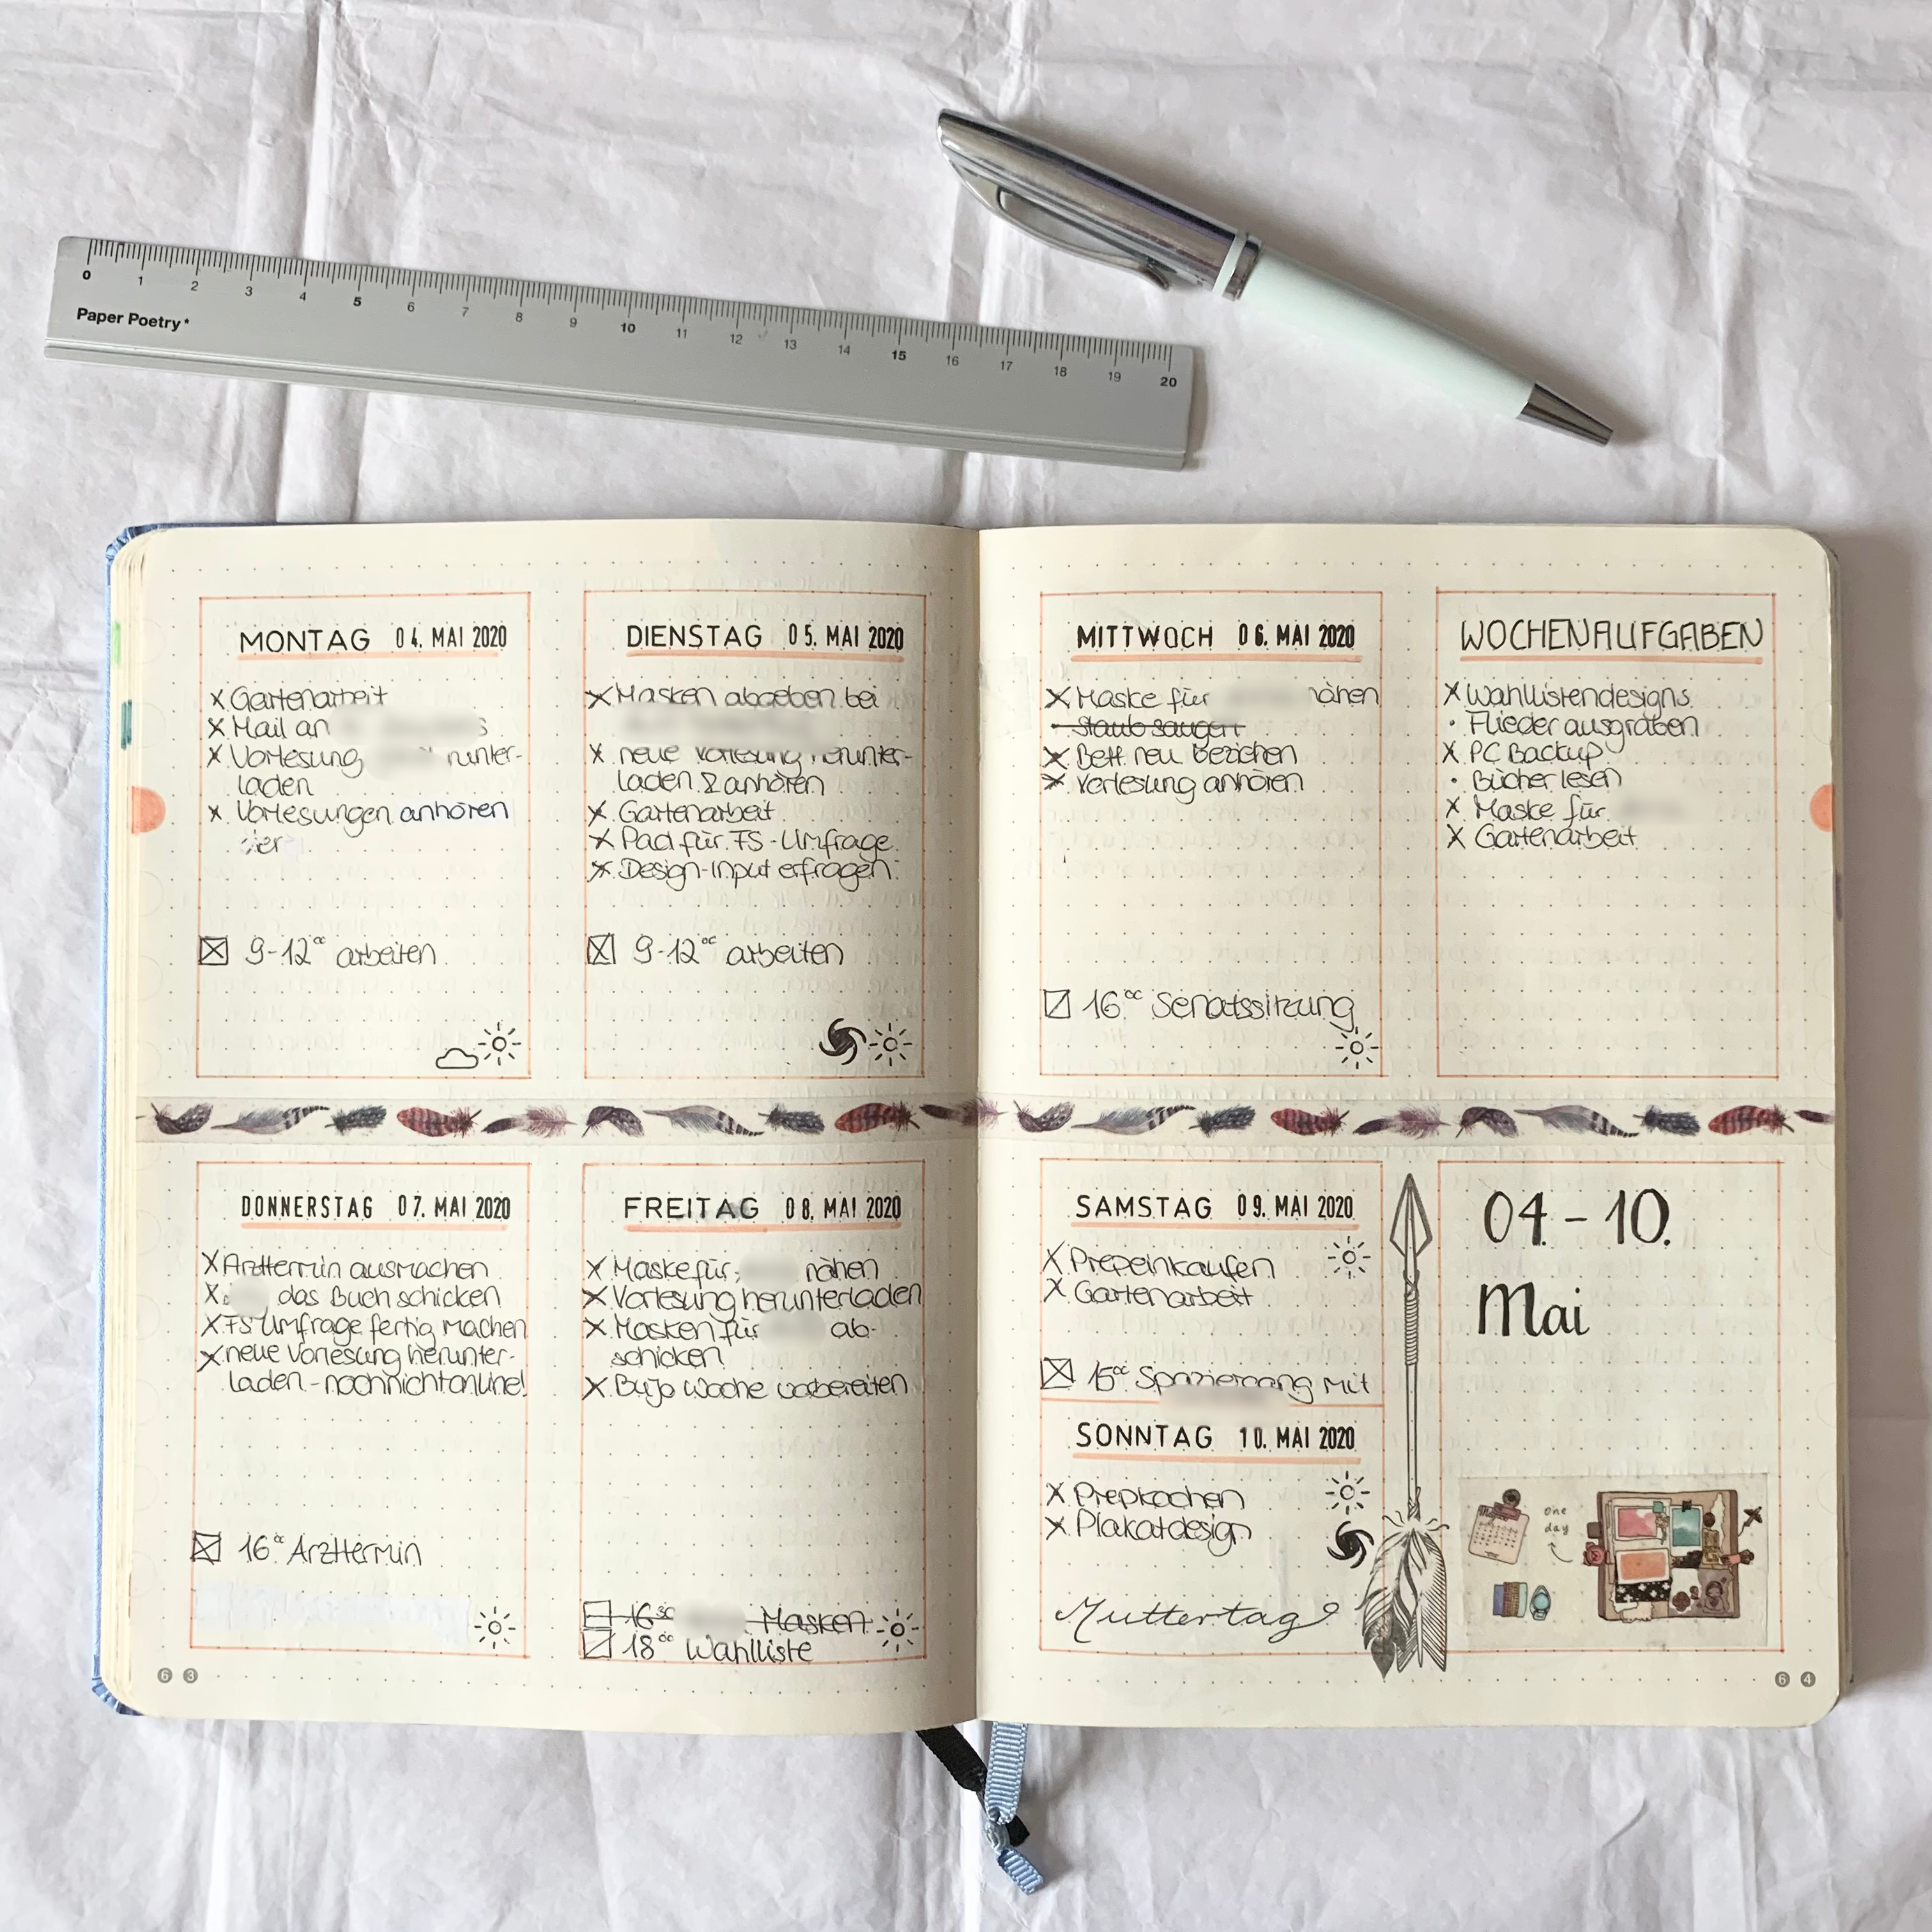 0 1 2 3 4 5 6 7 8 9 10 11 12 13 14 15 16 17 18 19 20
Paper Poetry*
MONTAG 04. MAI 2020
X Gartenarbeit
X Mail an
X Vorlesung runter-
laden
X Vorlesungen anhören
☒ 9-12⁰⁰ arbeiten
DIENSTAG 05. MAI 2020
X Masken abgeben bei
X neue Vorlesung herunter-
laden & anhören
X Gartenarbeit
X Pad für FS-Umfrage
X Design-Input erfragen
☒ 9-12⁰⁰ arbeiten
MITTWOCH 06. MAI 2020
X Maske für nähen
• Staub saugen
X Bett neu beziehen
X Vorlesung anhören
☑ 16⁰⁰ Senatssitzung
WOCHENAUFGABEN
X Wahllistendesigns
• Flieder ausgraben
X PC Backup
• Bücher lesen
X Maske für
X Gartenarbeit
DONNERSTAG 07. MAI 2020
X Arzttermin ausmachen
X das Buch schicken
X FS Umfrage fertig machen
X neue Vorlesung herunter-
laden - noch nicht online!
☒ 16⁰⁰ Arzttermin
FREITAG 08. MAI 2020
X Maske für nähen
X Vorlesung herunterladen
X Masken für ab-
schicken
X BuJo Woche vorbereiten
☐ 16³⁰ Masken
☑ 18⁰⁰ Wahlliste
SAMSTAG 09. MAI 2020
X Prepeinkaufen
X Gartenarbeit
☒ 15⁰⁰ Spaziergang mit
SONNTAG 10. MAI 2020
X Prepkochen
X Plakatdesign
Muttertag
04.-10.
Mai
one
day
63
64